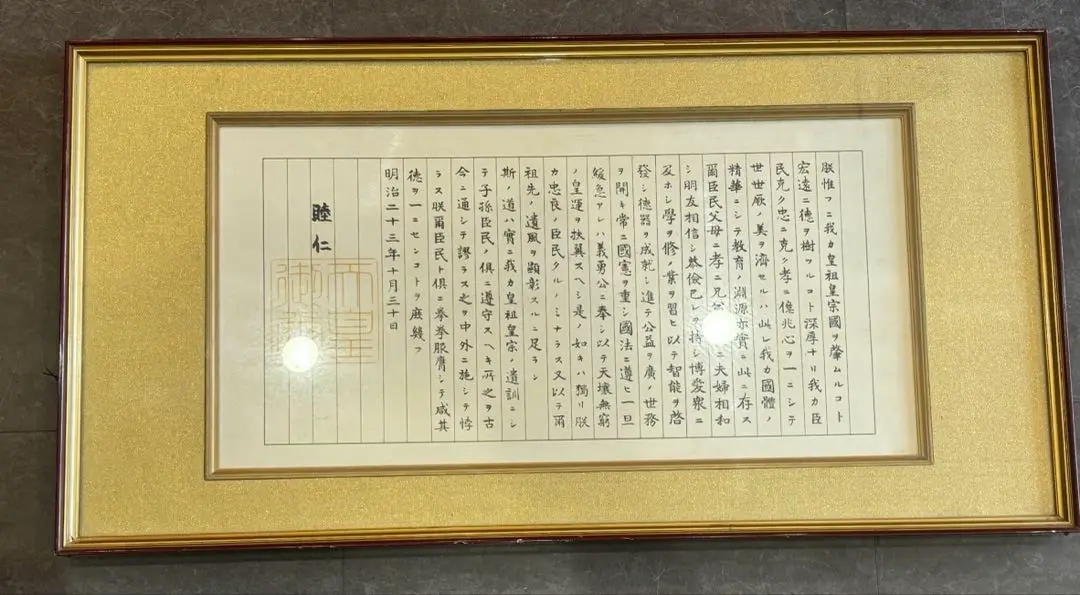 朕惟フニ我カ皇祖皇宗國ヲ肇ムルコト
宏遠ニ德ヲ樹ツルコト深厚ナリ我カ臣
民克ク忠ニ克ク孝ニ億兆心ヲ一ニシテ
世世厥ノ美ヲ濟セルハ此レ我カ國體ノ
精華ニシテ教育ノ淵源亦實ニ此ニ存ス
爾臣民父母ニ孝ニ兄 ニ夫婦相和
シ朋友相信シ恭儉己レヲ持シ博愛衆ニ
及ホシ學ヲ修メ業ヲ習ヒ以テ智能ヲ啓
發シ德器ヲ成就シ進テ公益ヲ廣メ世務
ヲ開キ常ニ國憲ヲ重シ國法ニ遵ヒ一旦
緩急アレハ義勇公ニ奉シ以テ天壤無窮
ノ皇運ヲ扶翼スヘシ是ノ如キハ獨リ朕
カ忠良ノ臣民タルノミナラス又以テ爾
祖先ノ遺風ヲ顯彰スルニ足ラン
斯ノ道ハ實ニ我カ皇祖皇宗ノ遺訓ニシ
テ子孫臣民ノ俱ニ遵守スヘキ所之ヲ古
今ニ通シテ謬ラス之ヲ中外ニ施シテ悖
ラス朕爾臣民ト俱ニ拳拳服膺シテ咸其
德ヲ一ニセンコトヲ庶幾フ
明治二十三年十月三十日
睦仁
天皇
御